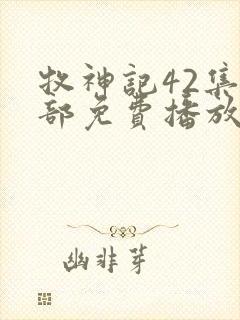 牧神記42集
部免費播放
幽非芽